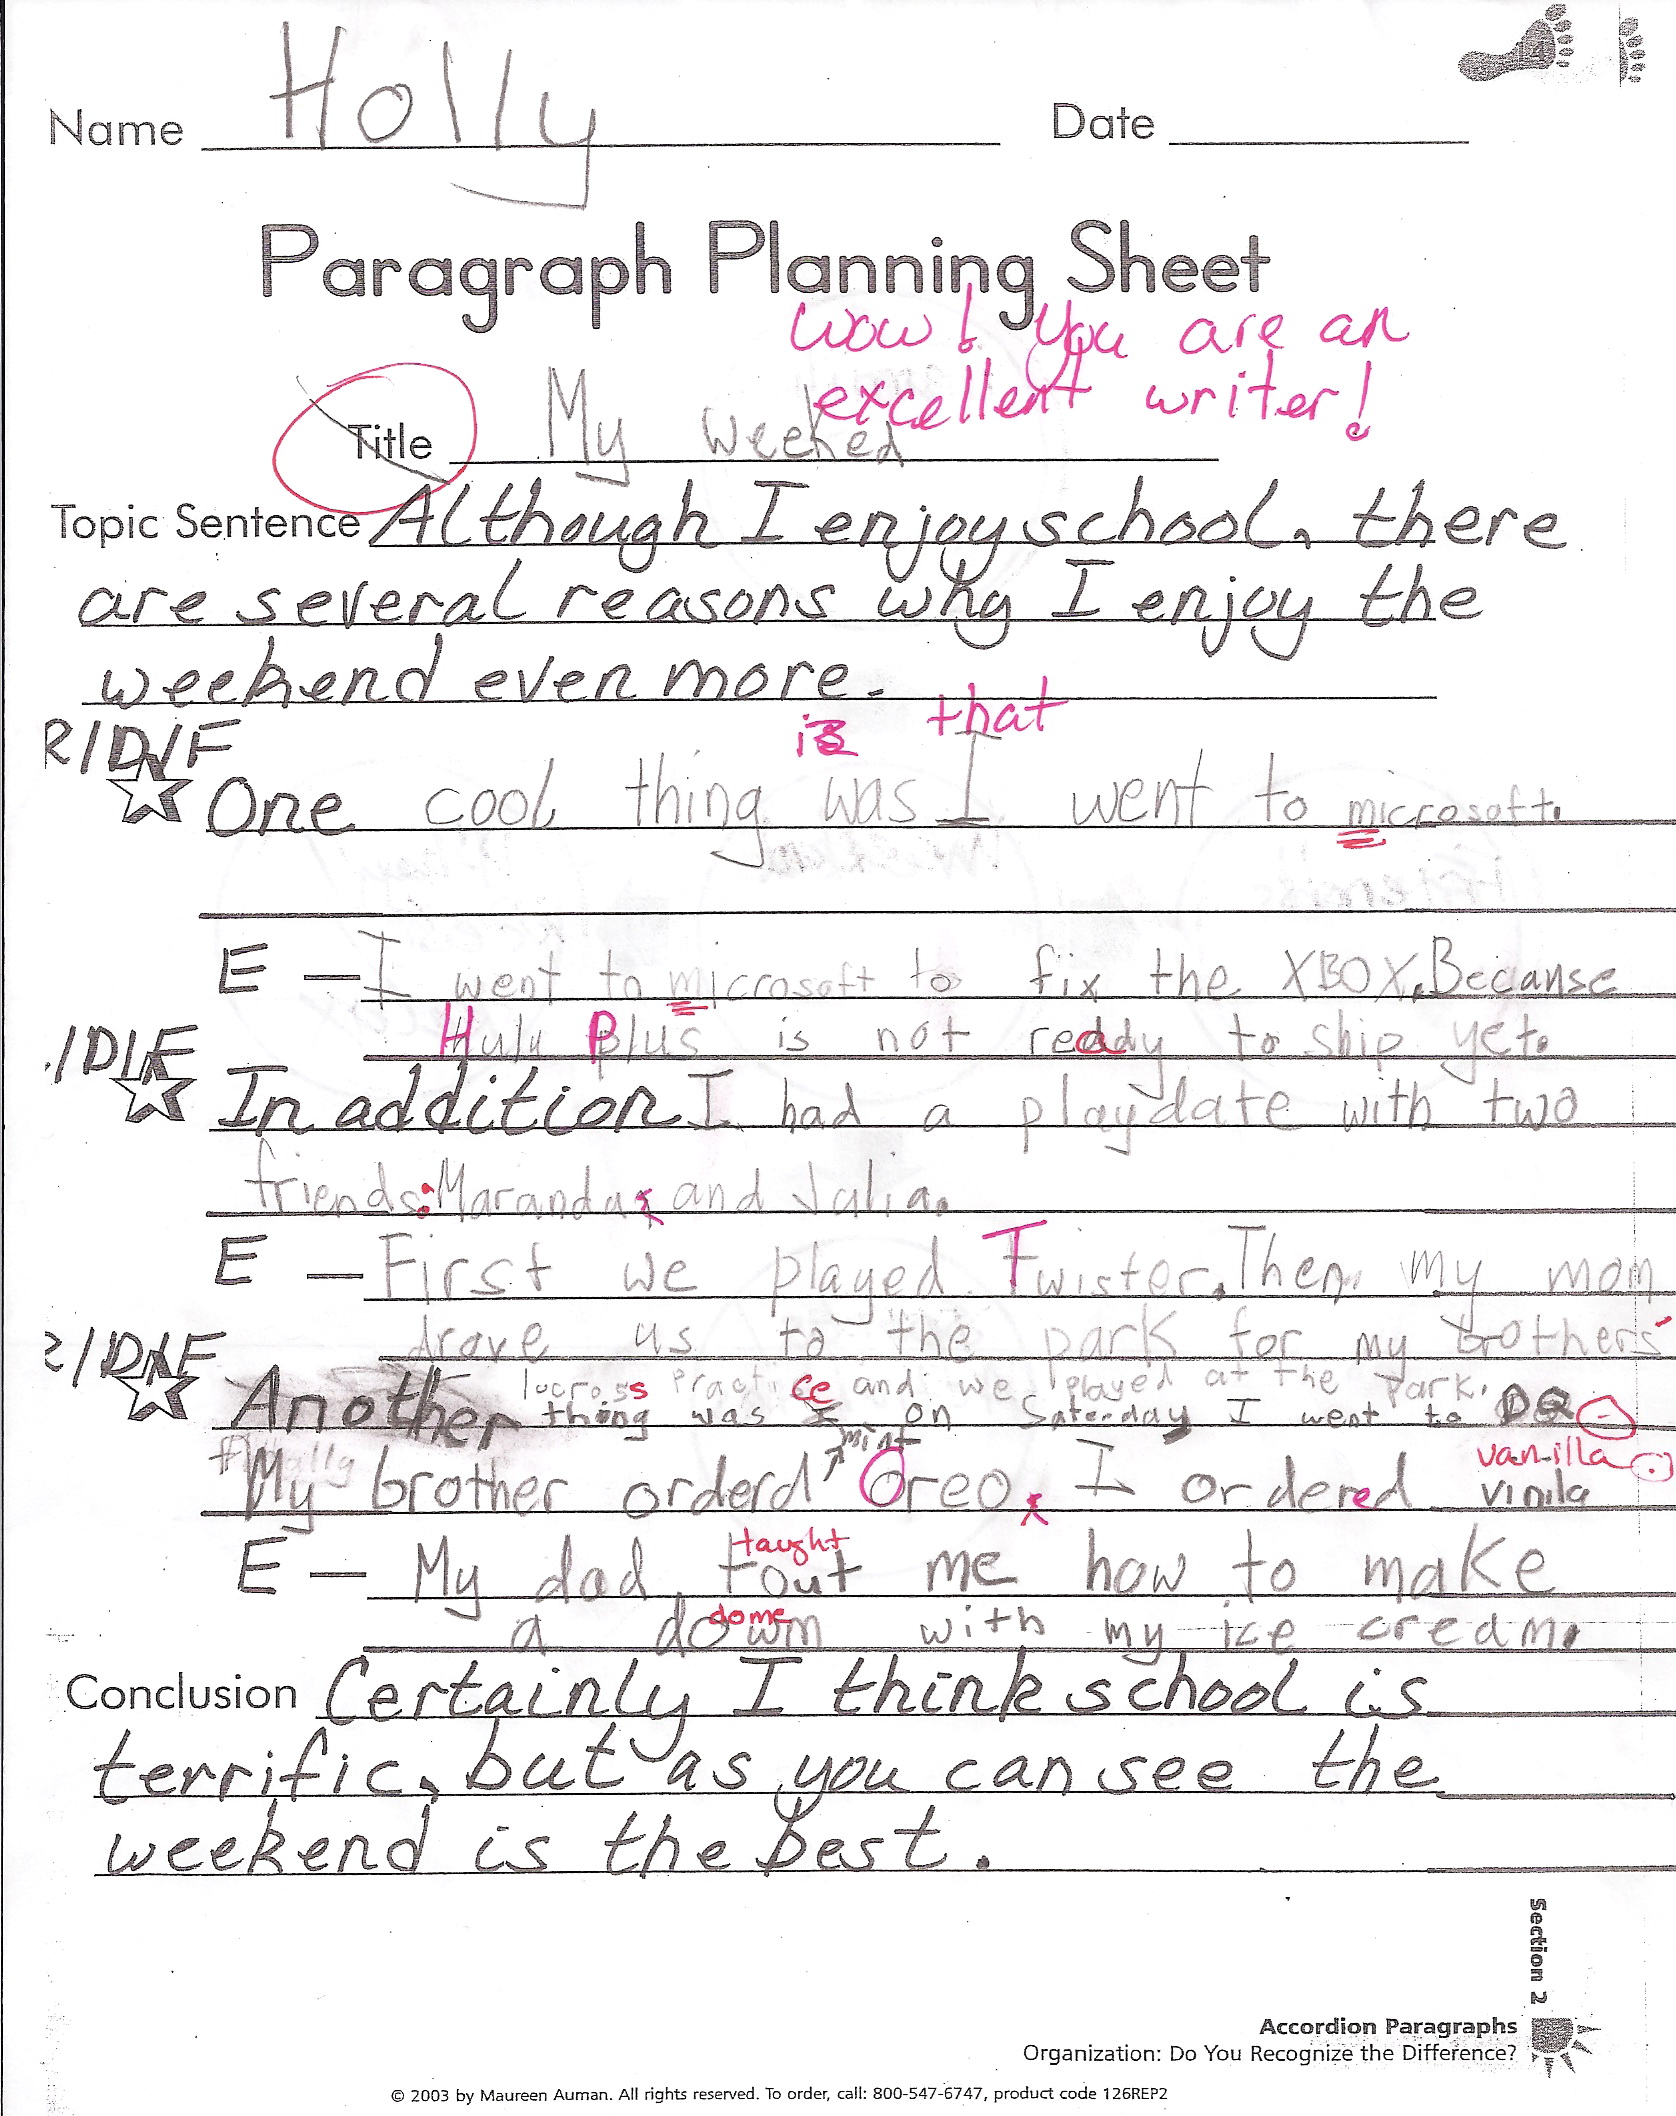 Name Holly Date
Paragraph Planning Sheet
Wow! You are an
excellent writer!
Title My weeked
Topic Sentence Although I enjoy school, there
are several reasons why I enjoy the
weekend even more.
R/D/F
is that
One cool thing was I went to microsoft.
E – I went to microsoft to fix the XBOX. Becanse
Hulu Plus is not ready to ship yet.
/D/F
In addition I had a playdate with two
friends: Maranda, and Julia.
E – First we played Twister. Then my mom
drove us to the park for my brothers'
R/D/F
locross practice and we played at the park.
Another thing was on Saterday I went to DQ.
mint
vanilla.
My brother orderd Oreo. I ordered vinila
taught
E – My dad tout me how to make
dome
a down with my ice cream.
Conclusion Certainly I think school is
terrific, but as you can see the
weekend is the best.
Section 2
Accordion Paragraphs
Organization: Do You Recognize the Difference?
© 2003 by Maureen Auman. All rights reserved. To order, call: 800-547-6747, product code 126REP2